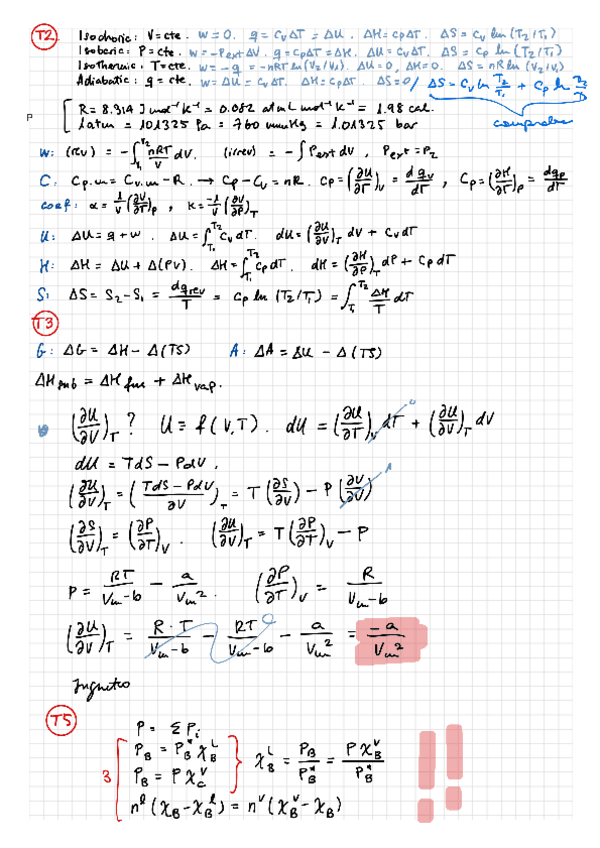 T2 Isochoric: V=cte. w=0. q=CvΔT = ΔU. ΔH=CpΔT. ΔS=Cv ln(T2/T1)
Isobaric: P=cte. w=-PextΔV. q=CpΔT=ΔH. ΔU=CvΔT. ΔS=Cp ln(T2/T1)
Isothermic: T=cte. w=-q=-nRT ln(V2/V1). ΔU=0, ΔH=0. ΔS=nR ln(V2/V1)
Adiabatic: q=cte. w=ΔU=CvΔT. ΔH=CpΔT. ΔS=0/ ΔS=Cv ln T2/T1 + Cp ln
P
R = 8.314 J mol⁻¹ K⁻¹ = 0.082 atm L mol⁻¹ K⁻¹ = 1.98 cal.
1atm = 101325 Pa = 760 mmHg = 1.01325 bar
w: (rev) = -∫T1T2 nRT/V dV. (irrev) = -∫Pext dV, Pext=P2
C: Cp.m = Cv.m - R. → Cp-Cv=nR. Cp=(∂U/∂T)V = dqv/dT, Cp=(∂H/∂T)P = dqp/dT
coef: α = 1/V (∂V/∂T)P, κ = -1/V (∂V/∂P)T
U: ΔU=q+w. ΔU=∫T1T2 Cv dT. dU=(∂U/∂V)T dV + CvdT
H: ΔH = ΔU + Δ(PV). ΔH=∫T1T2 Cp dT. dH=(∂H/∂P)T dP + CpdT
S: ΔS = S2-S1 = dqrev/T = Cp ln(T2/T1) = ∫T1T2 ΔH/T dT
T3
G: ΔG = ΔH - Δ(TS) A: ΔA = ΔU - Δ(TS)
ΔHsub = ΔHfus + ΔHvap.
(∂U/∂V)T ? U=f(V,T). dU = (∂U/∂T)V dT 0 + (∂U/∂V)T dV
dU = TdS - PdV,
(∂U/∂V)T = (TdS-PdV/∂V)T = T(∂S/∂V) - P(∂V/∂V) 1
(∂S/∂V)T = (∂P/∂T)V. (∂U/∂V)T = T(∂P/∂T)V - P
P = RT/Vm-b - a/Vm². (∂P/∂T)V = R/Vm-b
(∂U/∂V)T = R·T/Vm-b - RT/Vm-b - a/Vm² = -a/Vm²
T5
P = ΣPi
3 PB = PB* χB^L
PB = P χC^V
χB^L = PB/PB* = PχB^V/PB*
n^l(χB-χB^l) = n^v(χB^v-χB)